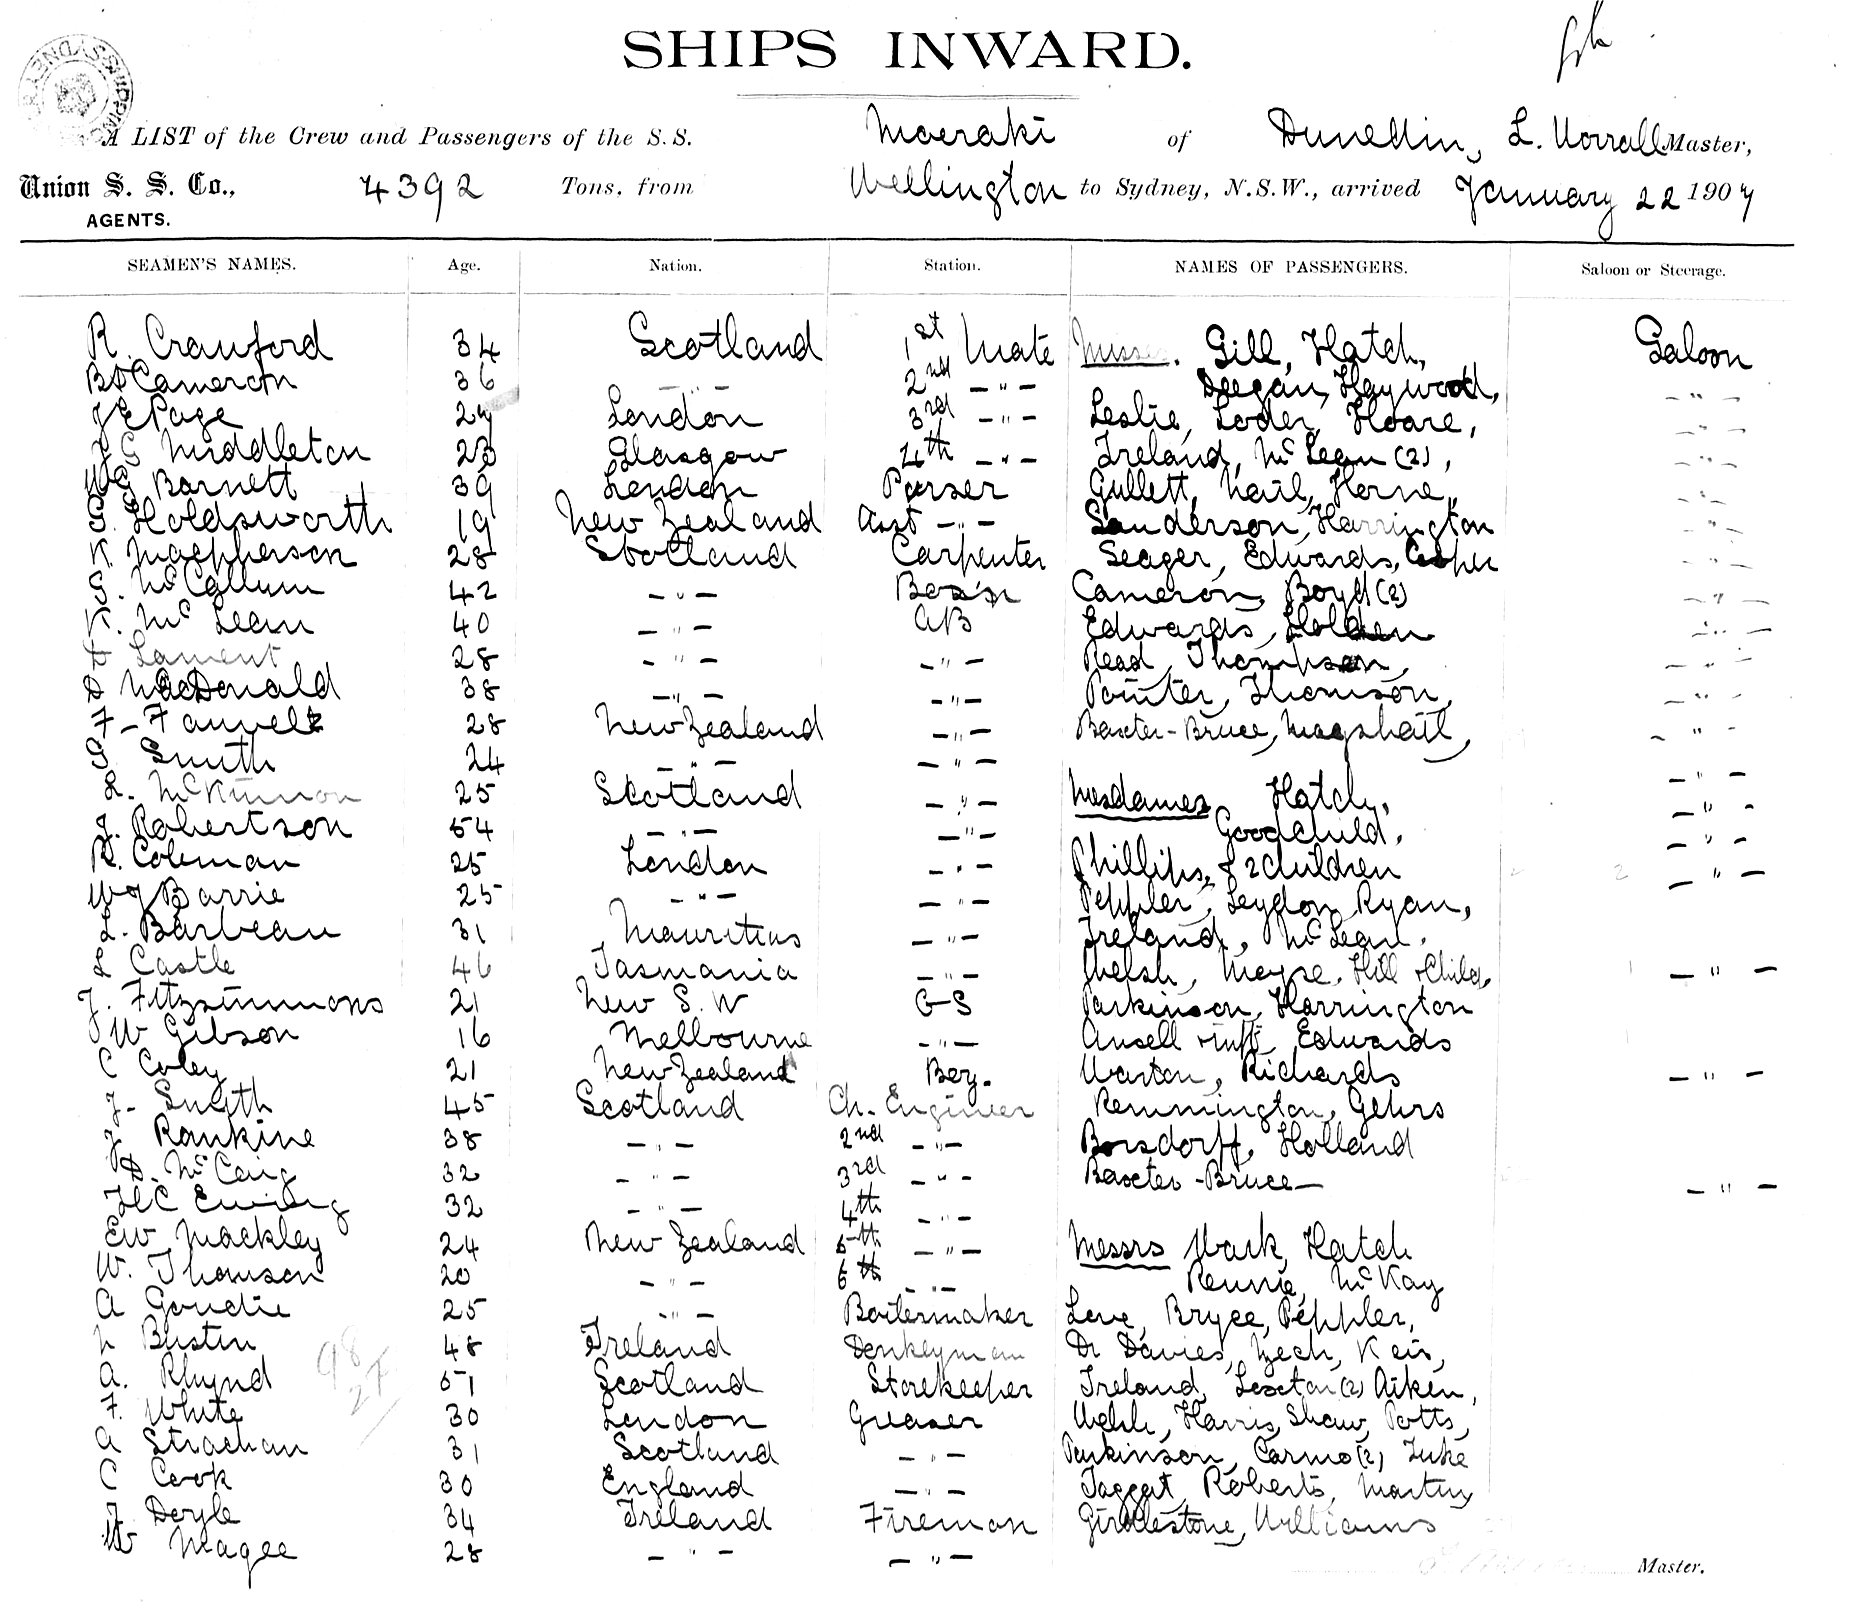 SHIPS INWARD.
A LIST of the Crew and Passengers of the S.S. Moeraki of Dunedin, L. Worrall Master,
Union S. S. Co., 4392 Tons, from Wellington to Sydney, N.S.W., arrived January 22 1907
AGENTS.
SEAMEN'S NAMES. Age. Nation. Station. NAMES OF PASSENGERS. Saloon or Steerage.
R. Crawford 34 Scotland 1st Mate Messrs. Gill, Hatch, Saloon
Cameron 36 -"- 2nd -"- Deegan, Haywood, -"-
J E Page 27 London 3rd -"- Leslie, Loder, Hoare, -"-
Middleton 23 Glasgow 4th -"- Ireland, McLean (2), -"-
W G Barnett 39 London Purser Gullett, Nail, Horne, -"-
G. Holdsworth 19 New Zealand Asst -"- Sanderson, Harrington -"-
K Macpherson 28 Scotland Carpenter Seager, Edwards, -"-
S. McCallum 42 -"- Bos'n Cameron, Boyd (2) -"-
K. McLean 40 -"- AB Edwards, Holden -"-
D Lamont 28 -"- -"- Read, Thompson, -"-
D MacDonald 38 -"- -"- Pointer, Thomson, -"-
F - 28 New Zealand -"- Baxter-Bruce, -"-
G. Smith 24 -"- -"- -"-
L. McKinnon 25 Scotland -"- Mesdames Hatch, -"-
J. Robertson 54 -"- -"- Goodchild, -"-
R. Coleman 25 London -"- Phillips, & 2 children -"-
W J Barrie 25 -"- -"- Peppler, Leydon, Ryan,
L. Barbeau 31 Mauritius -"- Ireland, McLean,
L Castle 46 Tasmania -"- Welsh, Hill & Child, -"-
J. Fitzsimmons 21 New S. W O S Parkinson, Harrington
W Gibson 16 Melbourne -"- Ansell & inft, Edwards
C Coley 21 New Zealand Boy. Warton, Richards -"-
J. Smith 45 Scotland Ch. Engineer Remmington, Gehrs
J Rankine 38 -"- 2nd -"- Borsdorff, Holland
D. McCaig 32 -"- 3rd -"- Baxter-Bruce- -"-
Ewing 32 -"- 4th -"-
EW Mackley 24 New Zealand 5th -"- Messrs Wark, Hatch
W. Thomson 20 -"- 6th -"- Rennie, McKay
A Goudie 25 -"- Boilermaker Love, Bryce, Peppler,
Bustin 48 Ireland Donkeyman Dr Davies, Zech, Keis,
A. Rhynd 51 Scotland Storekeeper Ireland, Lexton (2) Aitken,
F. White 30 London Greaser Webb, Harris, Shaw, Potts,
A Strachan 31 Scotland -"- Parkinson, Carmo (2) Luke
C Cook 30 England -"- Taggart, Roberts, Martin,
J Doyle 34 Ireland Fireman Girdlestone, Williams
W Magee 28 -"- -"-
Master.